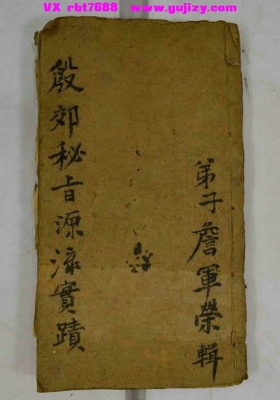 VX rbt7688 www.gujizy.com
殷郊秘旨源流實蹟
弟子詹軍榮輯